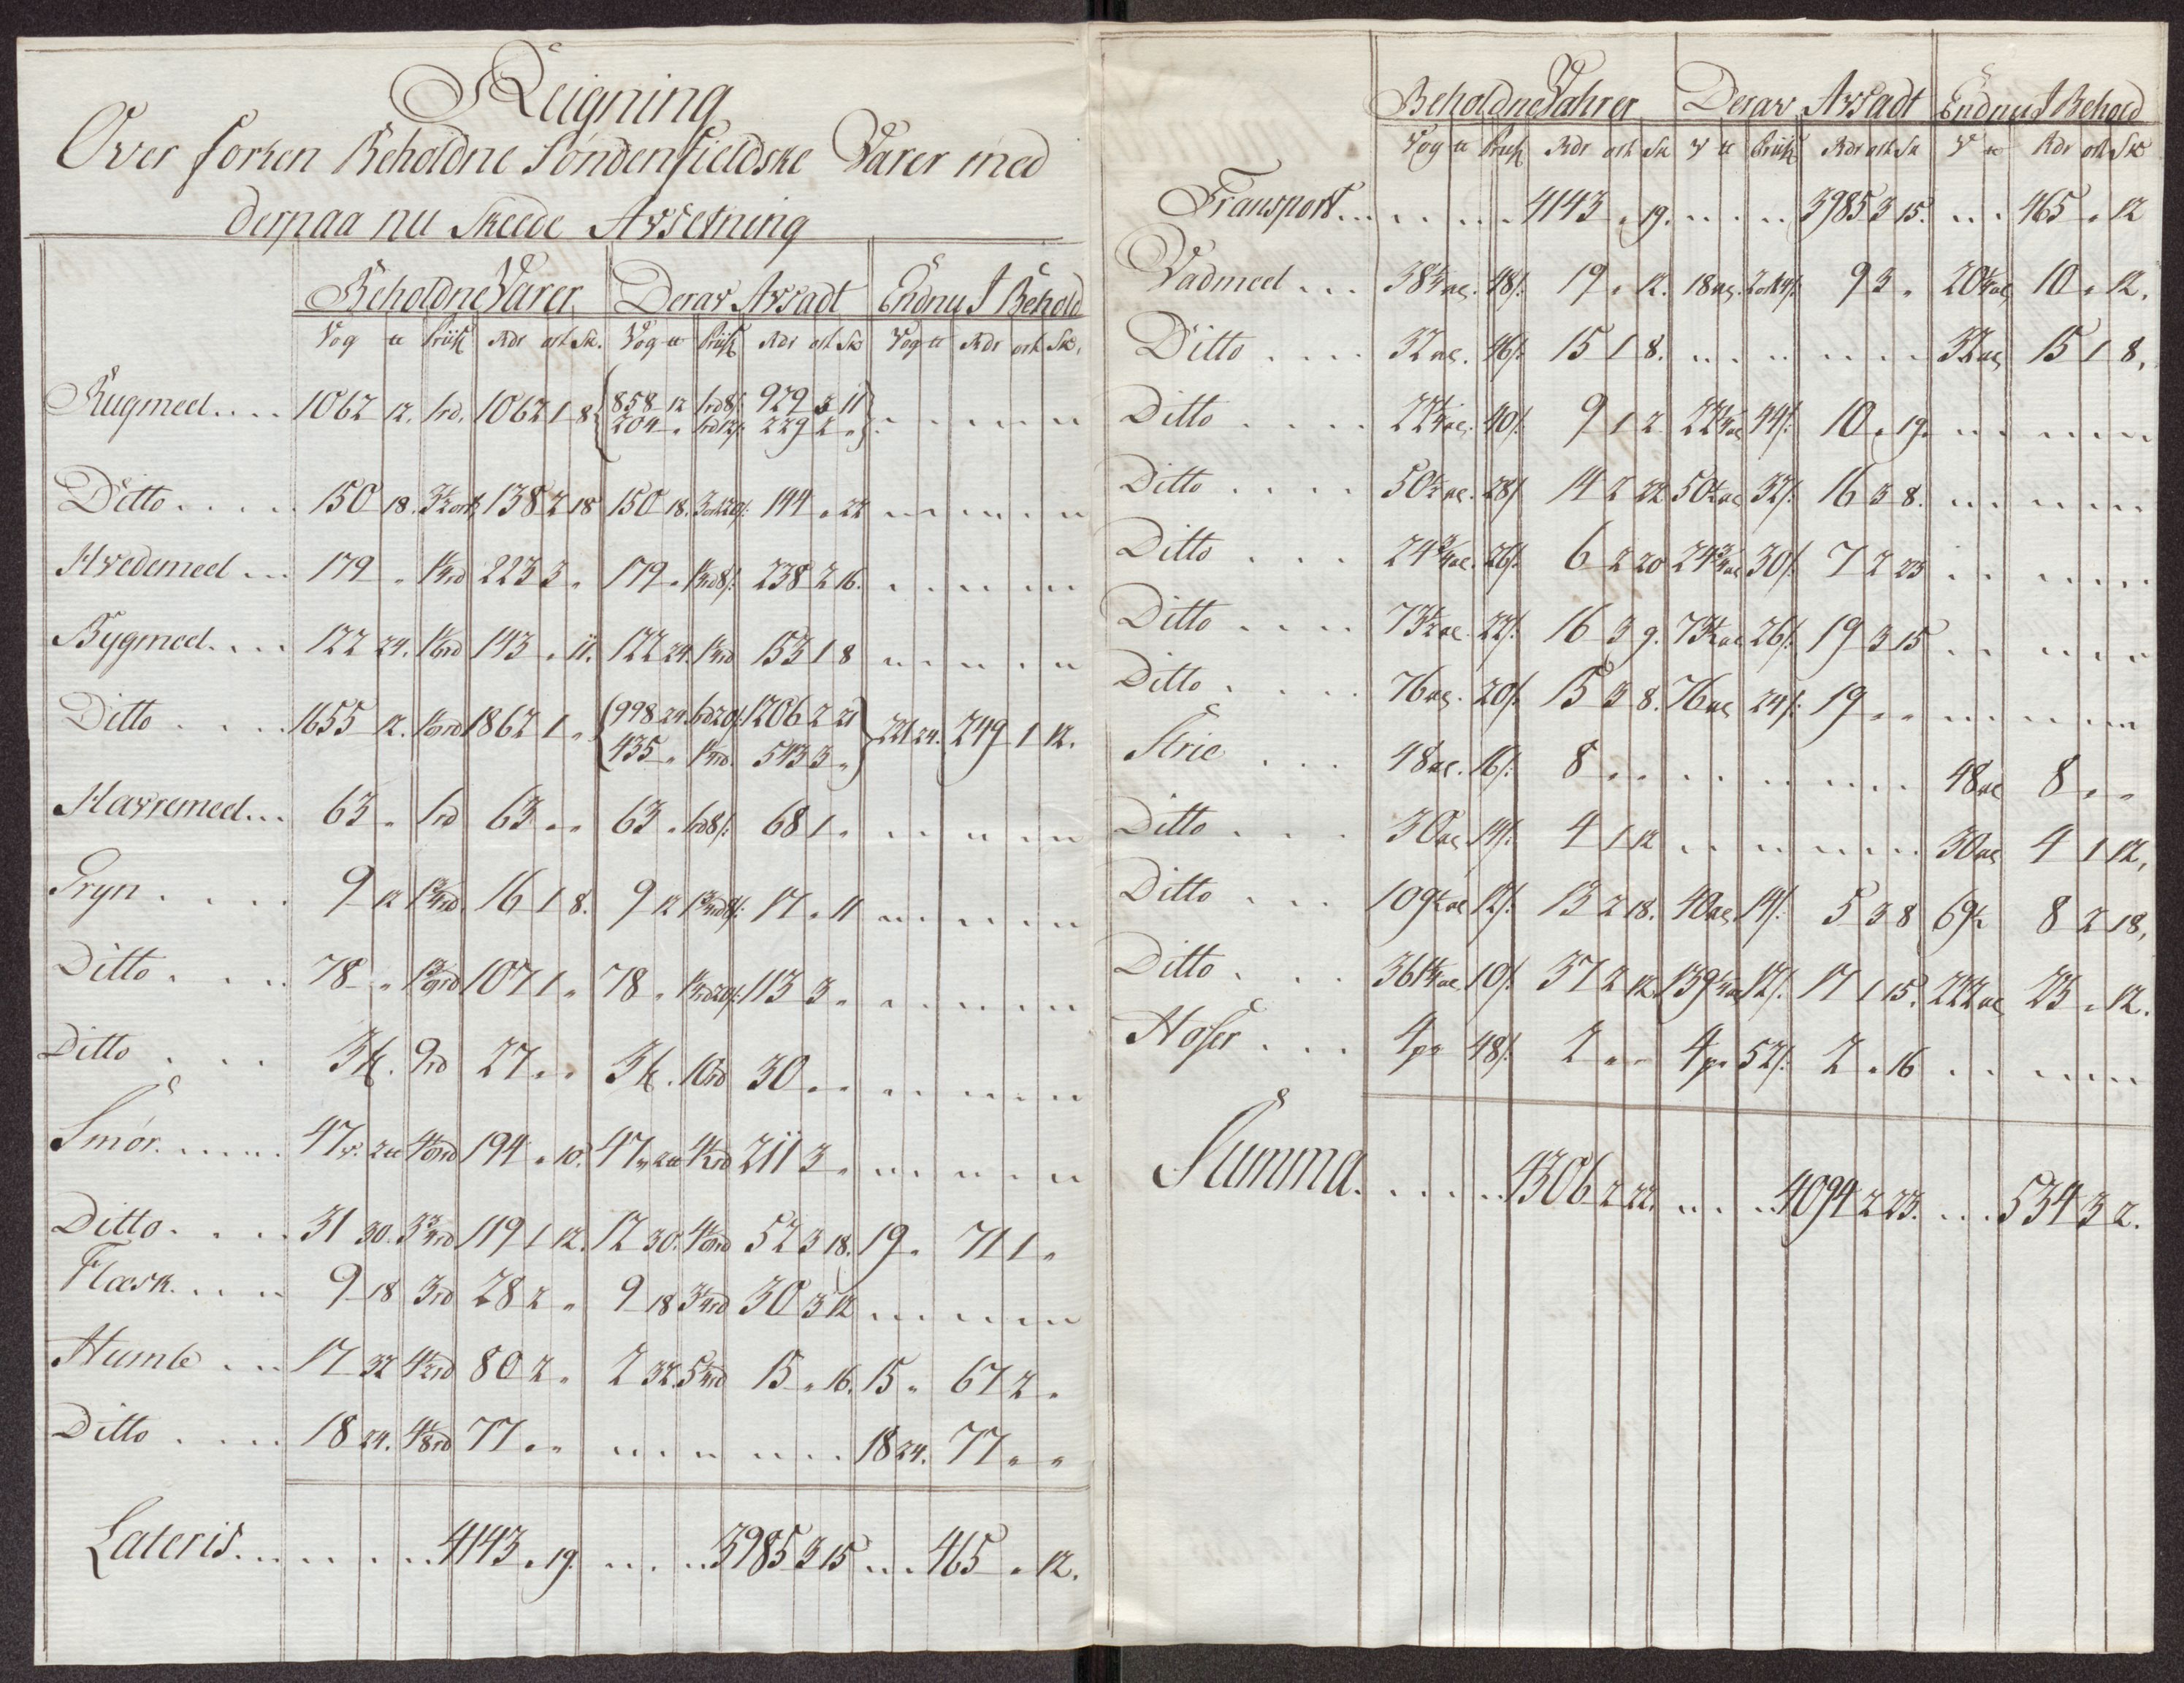 Reigning
Over forhen Beholdne Søndenfieldske Varer med
derpaa nu Skeede Avsetning
Beholdne Varer Derav Avsadt Endnu I Behold
Vog Priis Rdr ort Sk. Vog Priis Rdr ort Sk Vog Rdr ort Sk.
Rugmeel.... 1062 12. 1rd. 1062 1 8 858 12 1rd8s: 929 3 11
204 „ 1rd12s: 229 2 „
Ditto.... 150 18. 3½ort 138 2 18 150 18. 3ort20s: 144 „ 22
Hvedemeel... 179 „ 1¼rd 223 3 „ 179 „ 1¼rd8s: 238 2 16.
Bygmeel.... 122 24. 1⅙rd 143 „ 11. 122 24. 1¼rd 153 1 8
Ditto.... 1655 12. 1⅛rd 1862 1 „ 998 24. 1rd20s: 1206 2 21 221 24. 249 1 12.
435 „ 1¼rd. 543 3 „
Havremeel... 63 „ 1rd 63 „ „ 63 „ 1rd8s: 68 1 „
Gryn.... 9 12 1¾rd. 16 1 8. 9 12 1¾rd8s: 17 „ 11
Ditto.... 78 „ 1⅜rd 107 1 „ 78 „ 1¼rd20s: 113 3 „
Ditto... 3 9rd 27 „ „ 3 10rd 30 „ „
Smør..... 47 v. 2 4⅛rd 194 „ 10. 47 v 2 4½rd 211 3 „
Ditto.... 31 30. 3¾rd 119 1 12. 12 30. 4⅛rd 52 3 18. 19 „ 71 1 „
Flæsk.... 9 18 3rd 28 2 „ 9 18 3¼rd 30 3 12
Humle... 17 32 4½rd 80 2 „ 2 32. 5¼rd 15 „ 16. 15 „ 67 2 „
Ditto.... 18 24. 4⅛rd 77 „ „ 18 24. 77 „ „
Lateris....... 4143 „ 19. ..... 3985 3 15 ... 465 „ 12.
Beholdne Vahrer Derav Avsadt Endnu I Behold
Vog Priis Rdr ort Sk V Priis Rdr ort Sk V Rdr ort Sk
Transport....... 4143 „ 19. ..... 3985 3 15. ... 465 „ 12
Vadmeel... 38¼al. 48s: 19 „ 12. 18al. 2ort4s: 9 3 „ 20¼al 10 „ 12.
Ditto.... 32al. 46s: 15 1 8. 32al 15 1 8.
Ditto.... 22¼al. 40s: 9 1 2 22¼al 44s: 10 „ 19.
Ditto.... 50½al. 28s: 14 2 22 50½al 32s: 16 3 8.
Ditto.... 24¾al. 26s: 6 2 20 24¾al 30s: 7 2 23
Ditto.... 73½al. 22s: 16 3 9. 73½al 26s: 19 3 15
Ditto.... 76al. 20s: 15 3 8. 76al 24s: 19 „ „
Strie... 48al. 16s: 8 „ „ 48al 8 „ „
Ditto.... 30al 14s: 4 1 12 30al 4 1 12.
Ditto.... 109½al 12s: 13 2 18. 40al. 14s: 5 3 8 69½ 8 2 18.
Ditto.... 361¼al 10s: 37 2 12. 139¼al 12s: 17 1 15. 222al 23 „ 12.
Hoser... 4pr 48s: 2 „ „ 4pr 52s: 2 „ 16
Summa...... 4306 2 22. ..... 4094 2 23. ... 534 3 2.